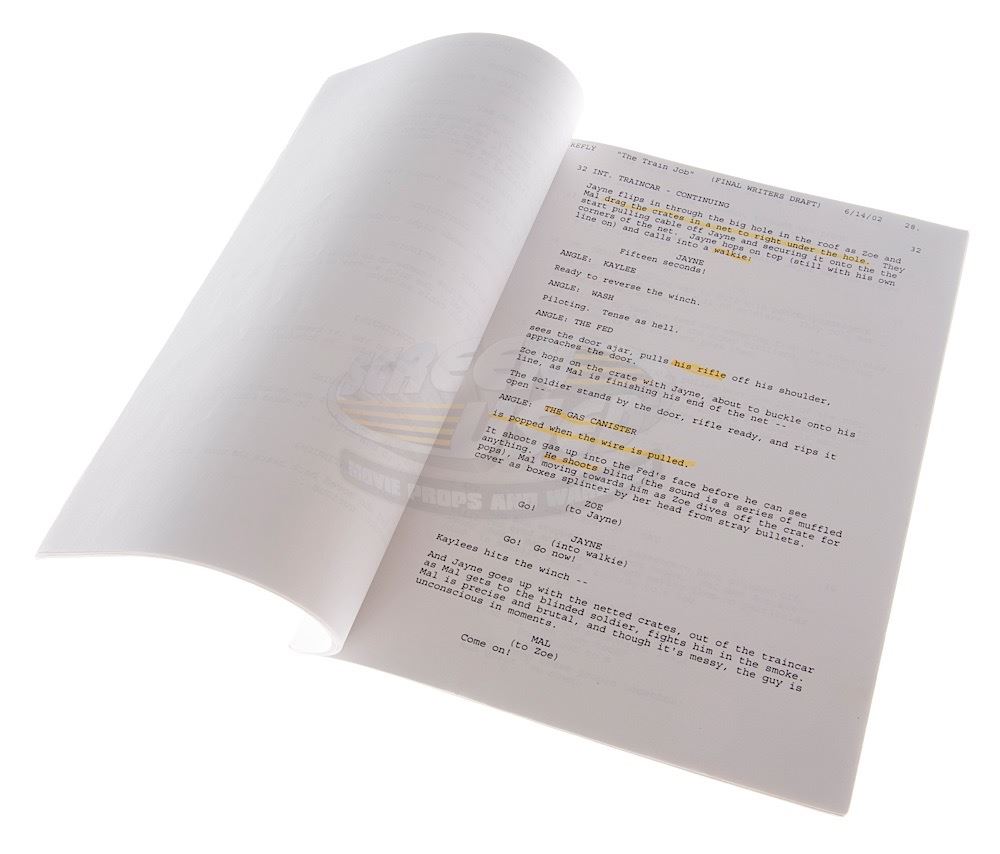 REFLY "The Train Job" (FINAL WRITERS DRAFT) 6/14/02 28.
32 INT. TRAINCAR - CONTINUING 32
Jayne flips in through the big hole in the roof as Zoe and
Mal drag the crates in a net to right under the hole. They
start pulling cable off Jayne and securing it onto the the
corners of the net. Jayne hops on top (still with his own
line on) and calls into a walkie:
JAYNE
Fifteen seconds!
ANGLE: KAYLEE
Ready to reverse the winch.
ANGLE: WASH
Piloting. Tense as hell.
ANGLE: THE FED
sees the door ajar, pulls his rifle off his shoulder,
approaches the door.
Zoe hops on the crate with Jayne, about to buckle onto his
line, as Mal is finishing his end of the net --
The soldier stands by the door, rifle ready, and rips it
open --
ANGLE: THE GAS CANISTER
is popped when the wire is pulled.
It shoots gas up into the Fed's face before he can see
anything. He shoots blind (the sound is a series of muffled
pops), Mal moving towards him as Zoe dives off the crate for
cover as boxes splinter by her head from stray bullets.
ZOE
(to Jayne)
Go!
JAYNE
(into walkie)
Go! Go now!
Kaylees hits the winch --
And Jayne goes up with the netted crates, out of the traincar
as Mal gets to the blinded soldier, fights him in the smoke.
Mal is precise and brutal, and though it's messy, the guy is
unconscious in moments.
MAL
(to Zoe)
Come on!
SCREEN
USED
MOVIE PROPS AND WA